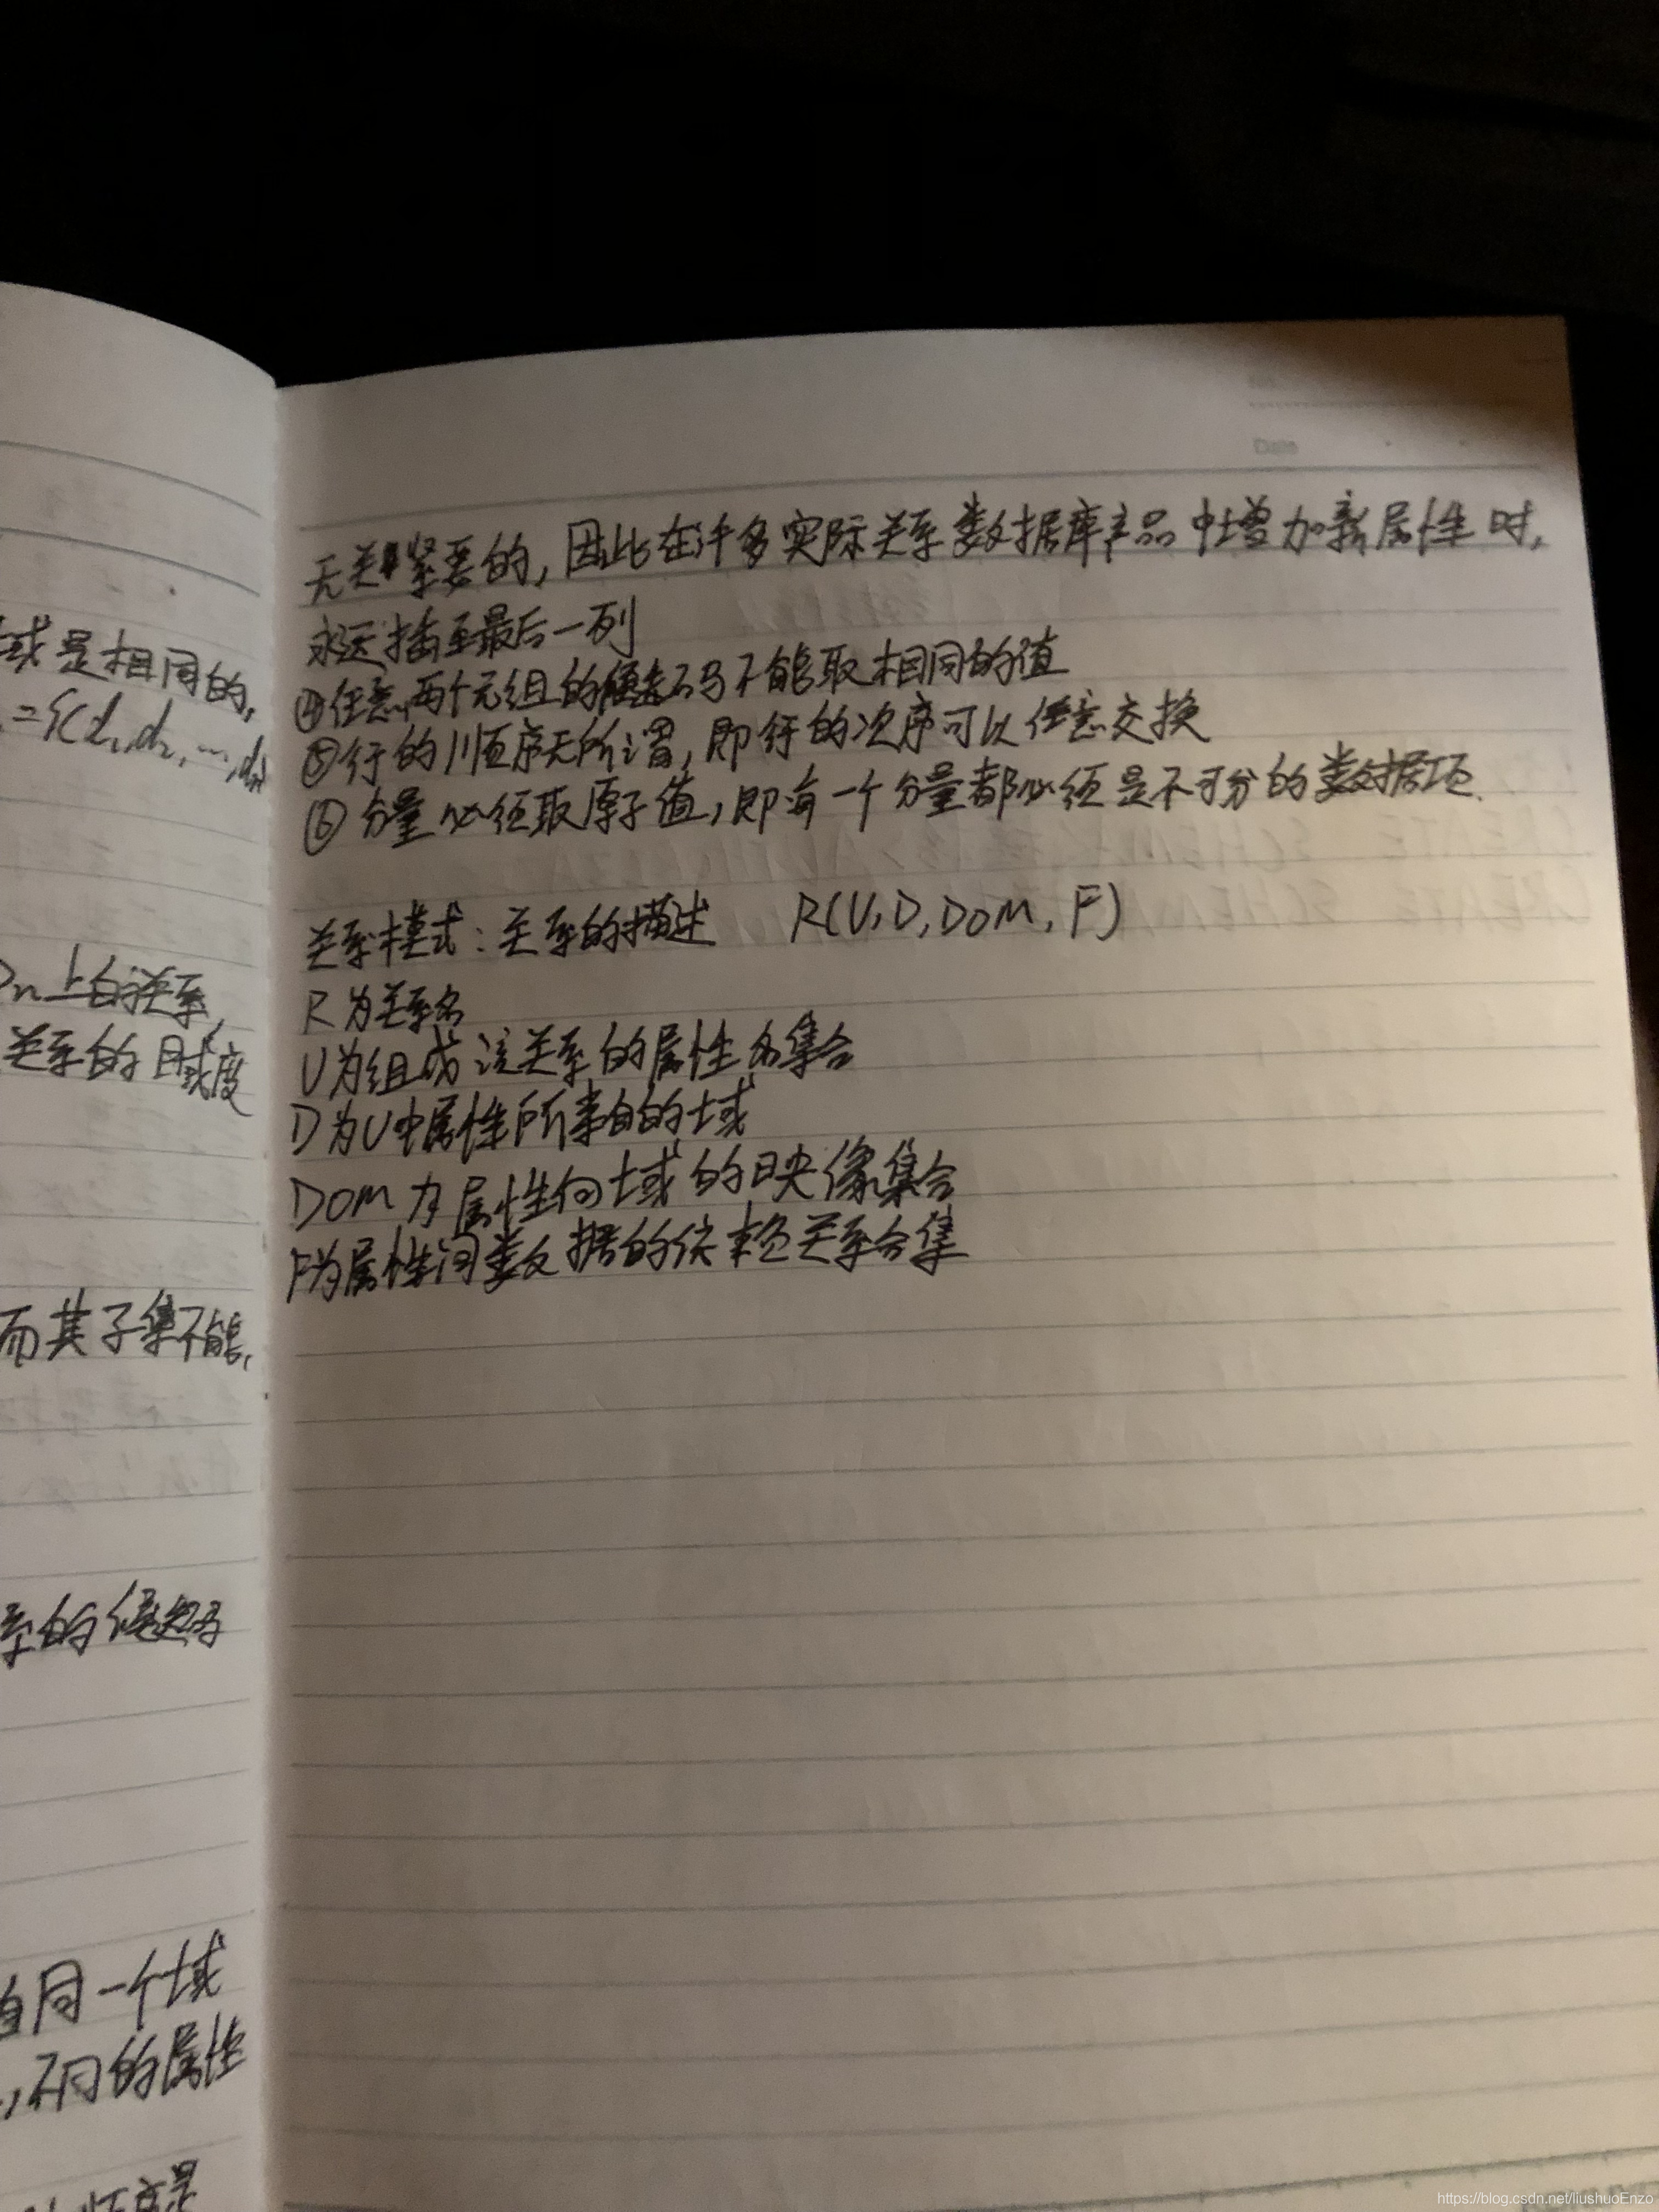 域是相同的,
={(d1,d2,…,dn)
Dn上的关系,
关系的目或度
而其子集不能,
系的候选码
自同一个域
,不同的属性
Date
无关紧要的,因此在许多实际关系数据库产品中增加新属性时,
永远插至最后一列
④任意两个元组的候选码不能取相同的值
⑤行的顺序无所谓,即行的次序可以任意交换
⑥分量必须取原子值,即每一个分量都必须是不可分的数据项.
关系模式:关系的描述 R(U,D,DOM,F)
R为关系名
U为组成该关系的属性名集合
D为U中属性所来自的域
DOM为属性向域的映像集合
F为属性间数据的依赖关系合集
https://blog.csdn.net/liushuoEnzo